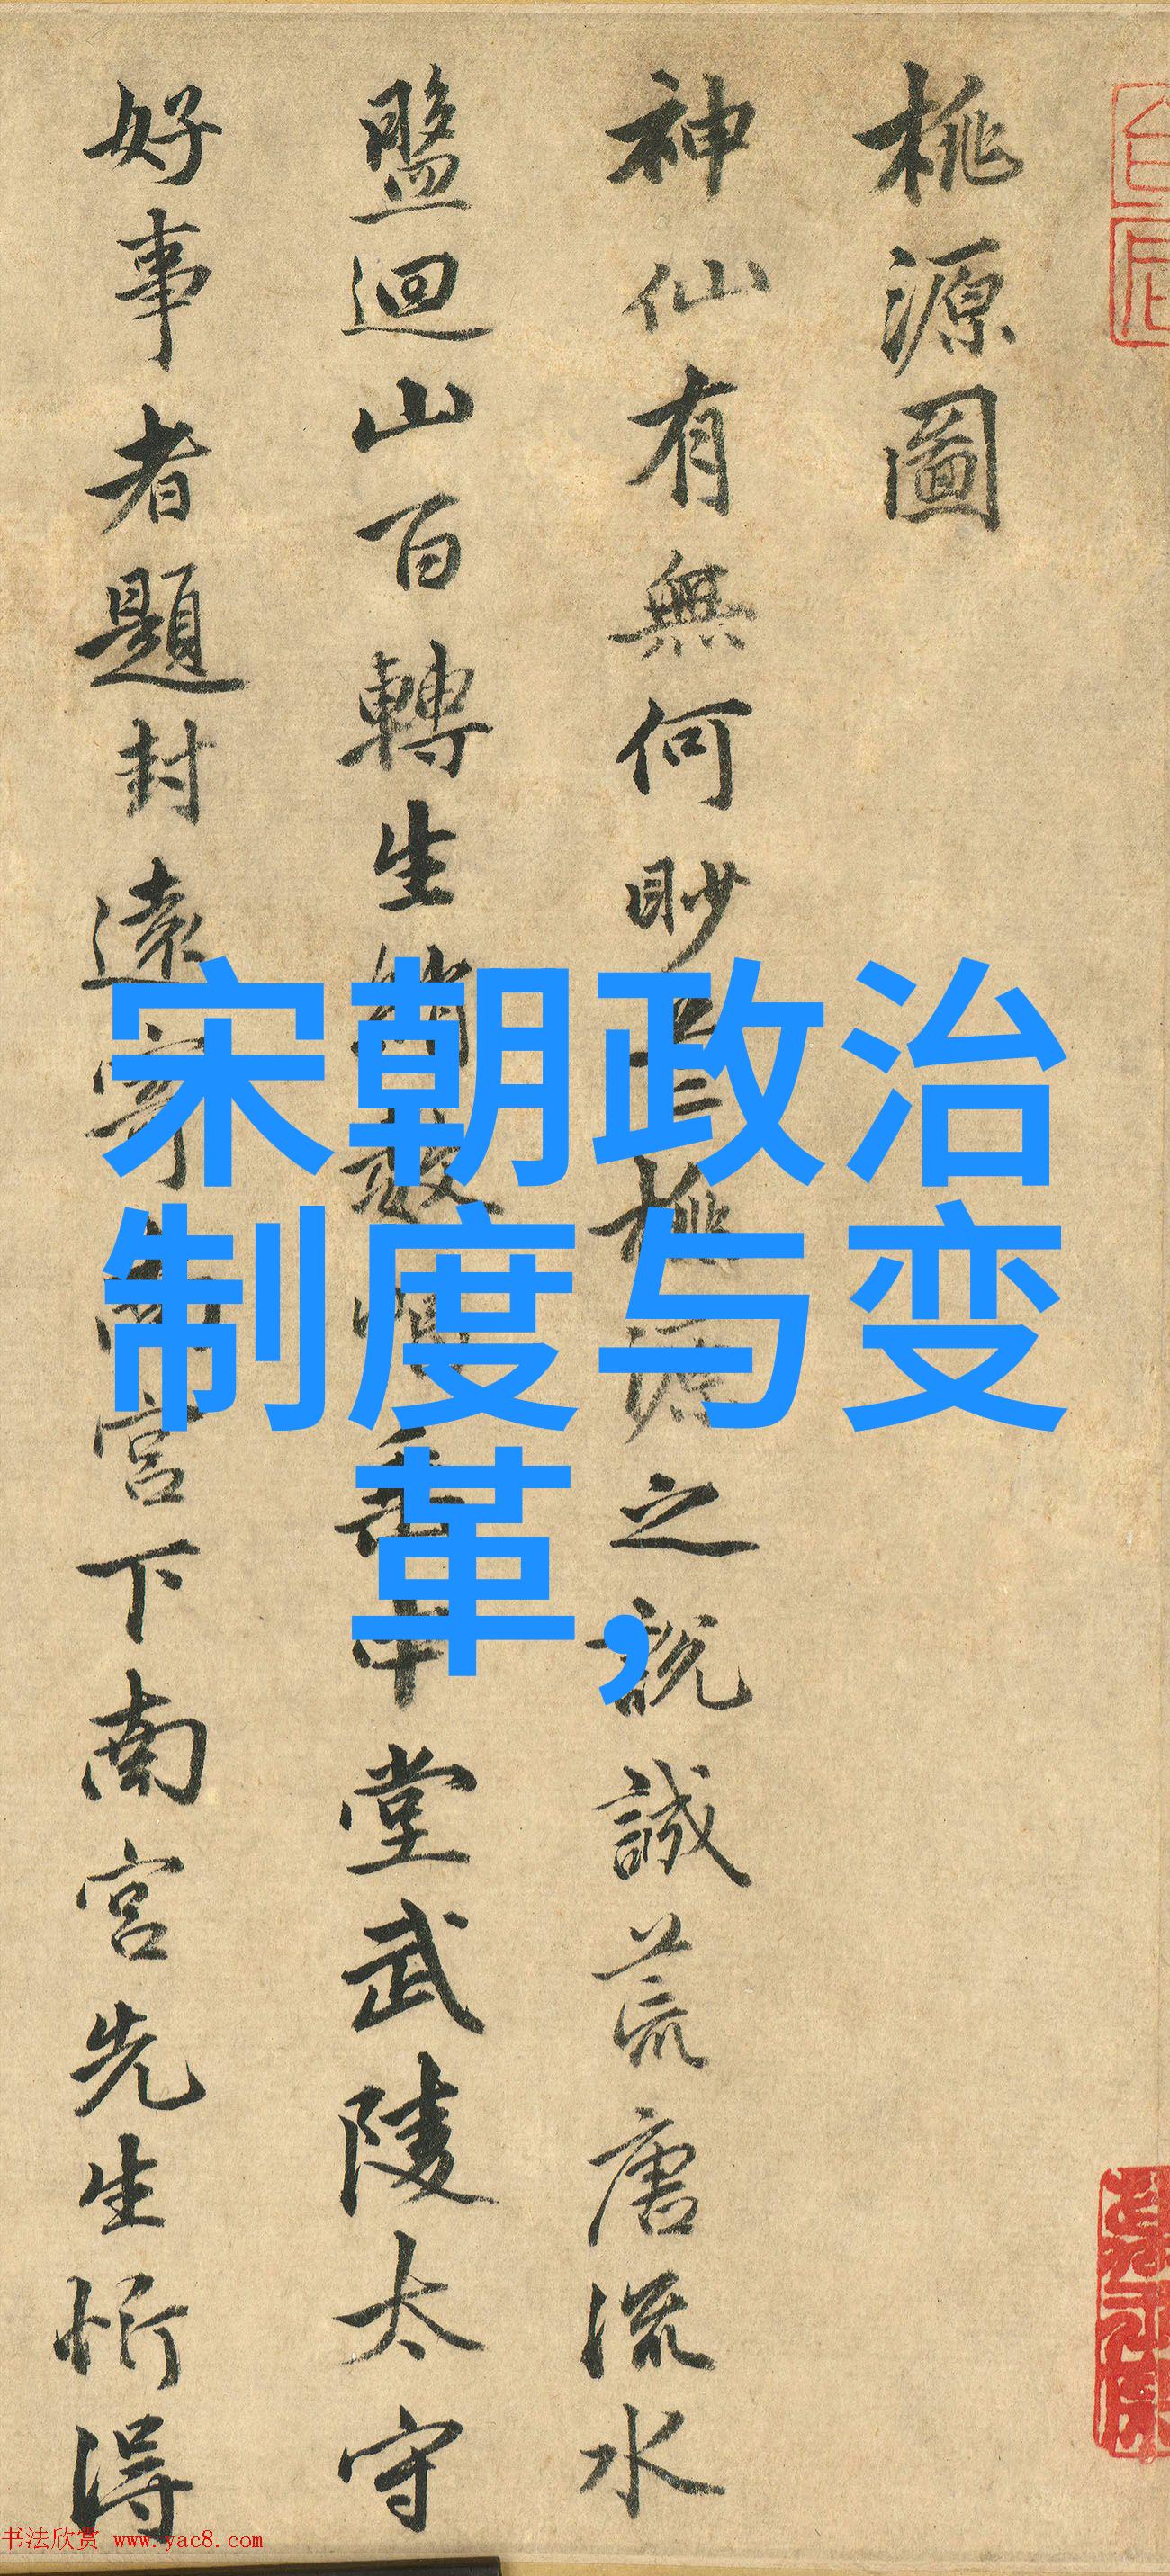 桃源圖
神仙有無何眇芒桃源之說誠荒唐流水
盤迴山百轉生綃數幅垂中堂武陵太守
好事者題封遠寄南宮下南宮先生忻得
宋朝政治
制度与变
革,
书法欣赏 www.yac8.com